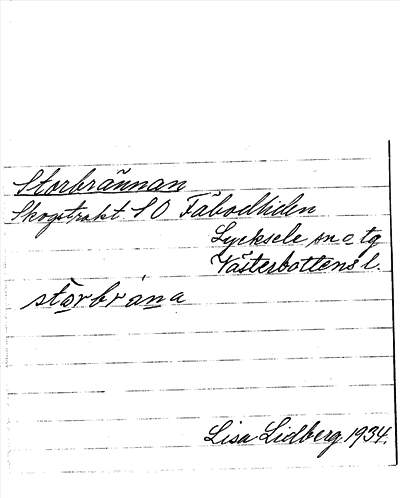 Storbrännan
Skogstrakt S O Fäbodliden
Lycksele sn o tg
Västerbottens l.
storbrána
Lisa Lidberg 1934.